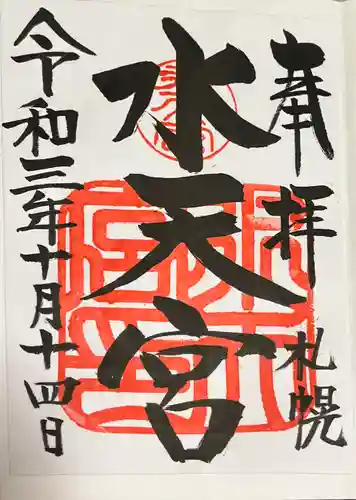 奉拝 札幌
水天宮
令和三年十月十四日